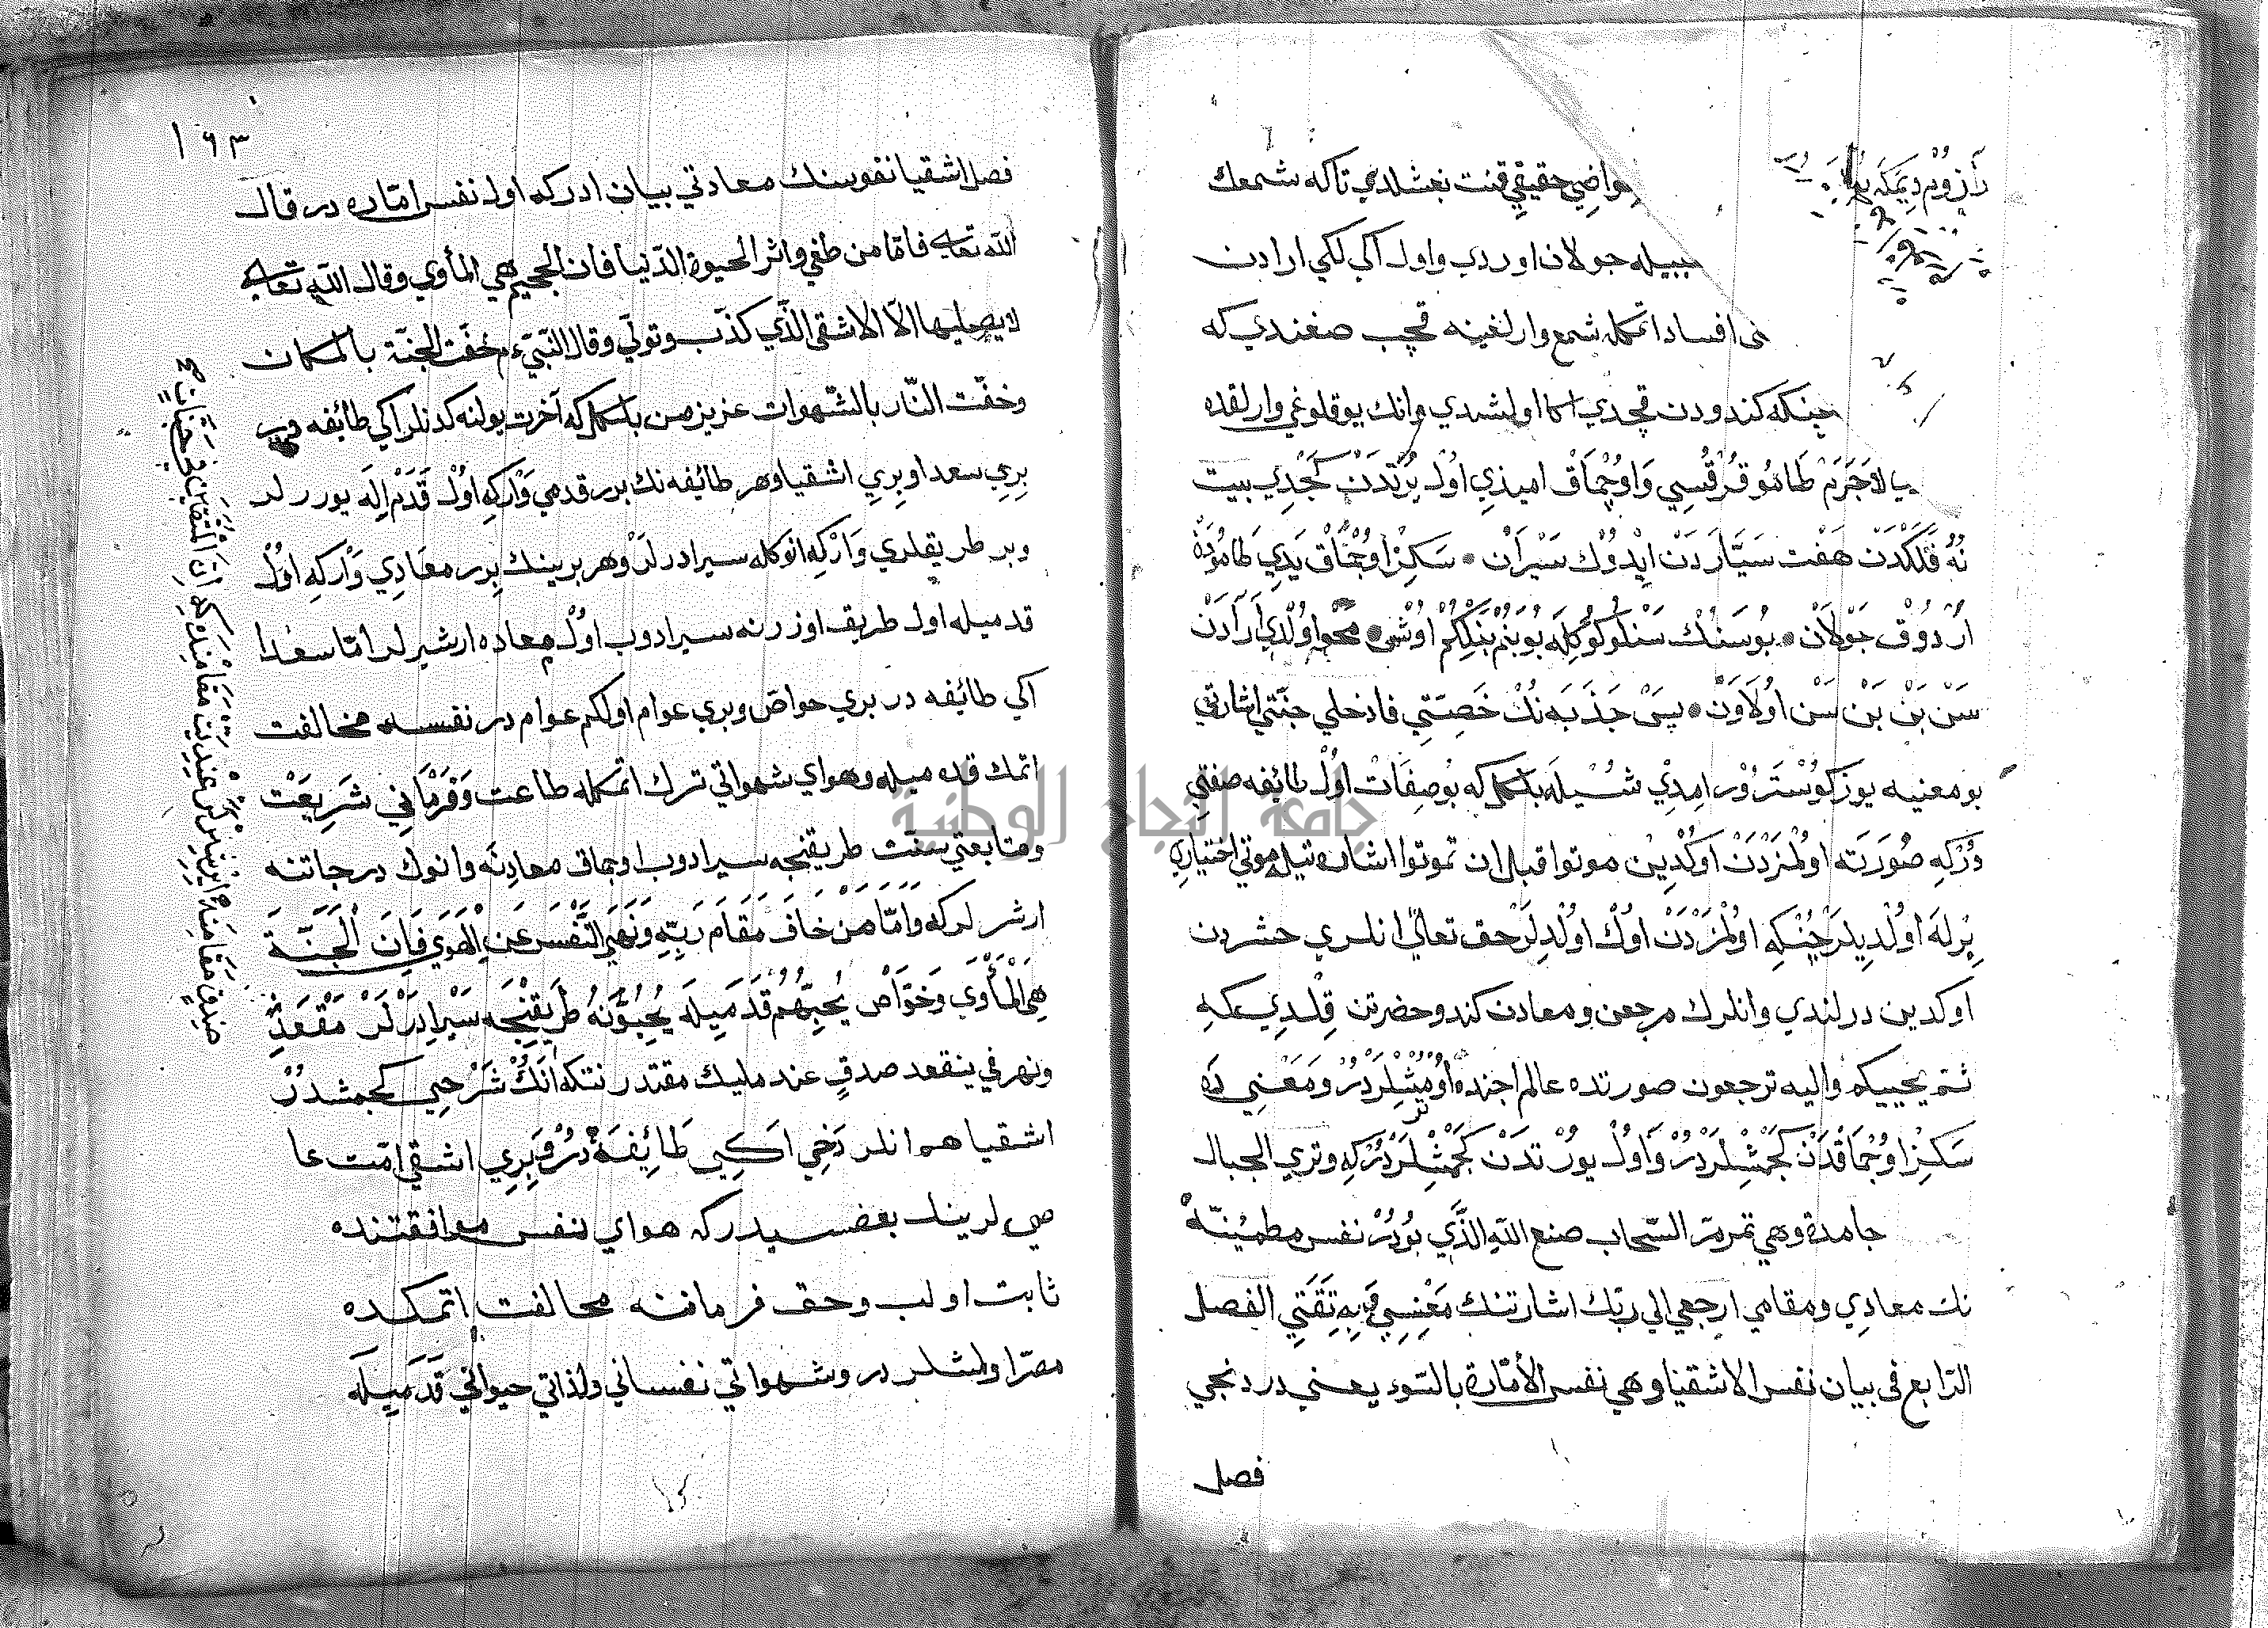 هواضي حقيقي قنت نغشلدي تاكه شمعك
سيله جولان اوردب واول اكي لكي ارادن
افساد اتمكله شمع وارلغينه قچب صغندي كه
چنكه كندودن قچدي اكا اولشدي وانك يوقلوغي وارلقده
لاجرم طامو قرقسي واوچماق اميذي اول يرتدن كجدي بيت
نه فلكدن هفت سيارdن ايدوك سيران سكز اوچماق يدي طامودن
اردوق جولان بو سنك سنلوكوكله بو بنم بنلكم اوش محو اولدي ارادن
سن بن بن سن اولاون پس جذبه نك خصيتي فادخلي جنتي اشارتي
بو معنيه يوز كوستررور امدي شيله باكل كه بو صفات اول طائيفه صفتي
دركه صورته اولمزدن اوكدين موتوا قبل ان تموتوا اشارتيله موتي اختياري
برله اولديلر چنكه اولمزدن اوك اولدلر حق تعالي انلري حشردن
اوكدين درلندي وانلرك مرجعن ومعادن كندو حضرتن قلدي كه
ثم يحييكم واليه ترجعون صورتده عالم اجنده اومشلردر ومعنيده
سكز اوچماقدن كجمشلردر واول يورتدن كجمشلردركه وتري الجبال
جامدة وهي تمر مر السحاب صنع الله الذي بودر نفس مطمئنة
نك معادي ومقامي ارجعي الي ربك اشارتنك معنيسي ثقتي الفصل
الرابع في بيان نفس الاشقيا وهي نفس الامارة بالسوء يعني دردنجي
فصل
١٩٣
فصل اشقيا نفوسنك معادني بيان ادركه اول نفس اماره در قال
الله تعالي فاما من طغي واثر الحيوة الدنيا فان الجحيم هي المأوي وقال الله تعالي
لا يصليها الا الاشقي الذي كذب وتولي وقال النبي عم خفت الجنة بالمكان
وخفت النار بالشهوات عزيز من باكل كه آخرت يولنه كدنلر اكي طائفه در
بري سعدا وبري اشقيا وهر طائيفه نك برر قدمي واركه اول قدم اله يوررلر
وبر طريقلري واركه انوكله سير ادرلر وهر برينك برر معادي واركه اول
قدميله اول طريق اوزرنه سير ادوب اول معاده ارشيرلر اما سعدا
اكي طائيفه در بري خواص وبري عوام اولكم عوام در نفسه مخالفت
اتمك قدميله وهواي شهواتي ترك اتمكله طاعت وفرماني شريعت
ومتابعتي سنت طريقنجه سير ادوب اوچماق معادنه وانوك درجاتنه
ارشرلركه واما من خاف مقام ربه ونهي النفس عن الهوي فان الجنة
هي المأوي وخواص يحبهم قدميله يحبونه طريقنجه سير ادرلر مقعد
ونهر في ينقعد صدق عند مليك مقتدر نتكه انك شرحي كجمشدر
اشقيا هم انلر دخي اكي طائيفه در بري اشقي امت عا
صي لرينك بعضسيدركه هواي نفس موافقتنده
ثابت اولب وحق فرماننه مخالفت اتمكده
مصر اولمشلردر وشهواتي نفساني ولذاتي حيواني قدميله
جامعة النجاح الوطنية